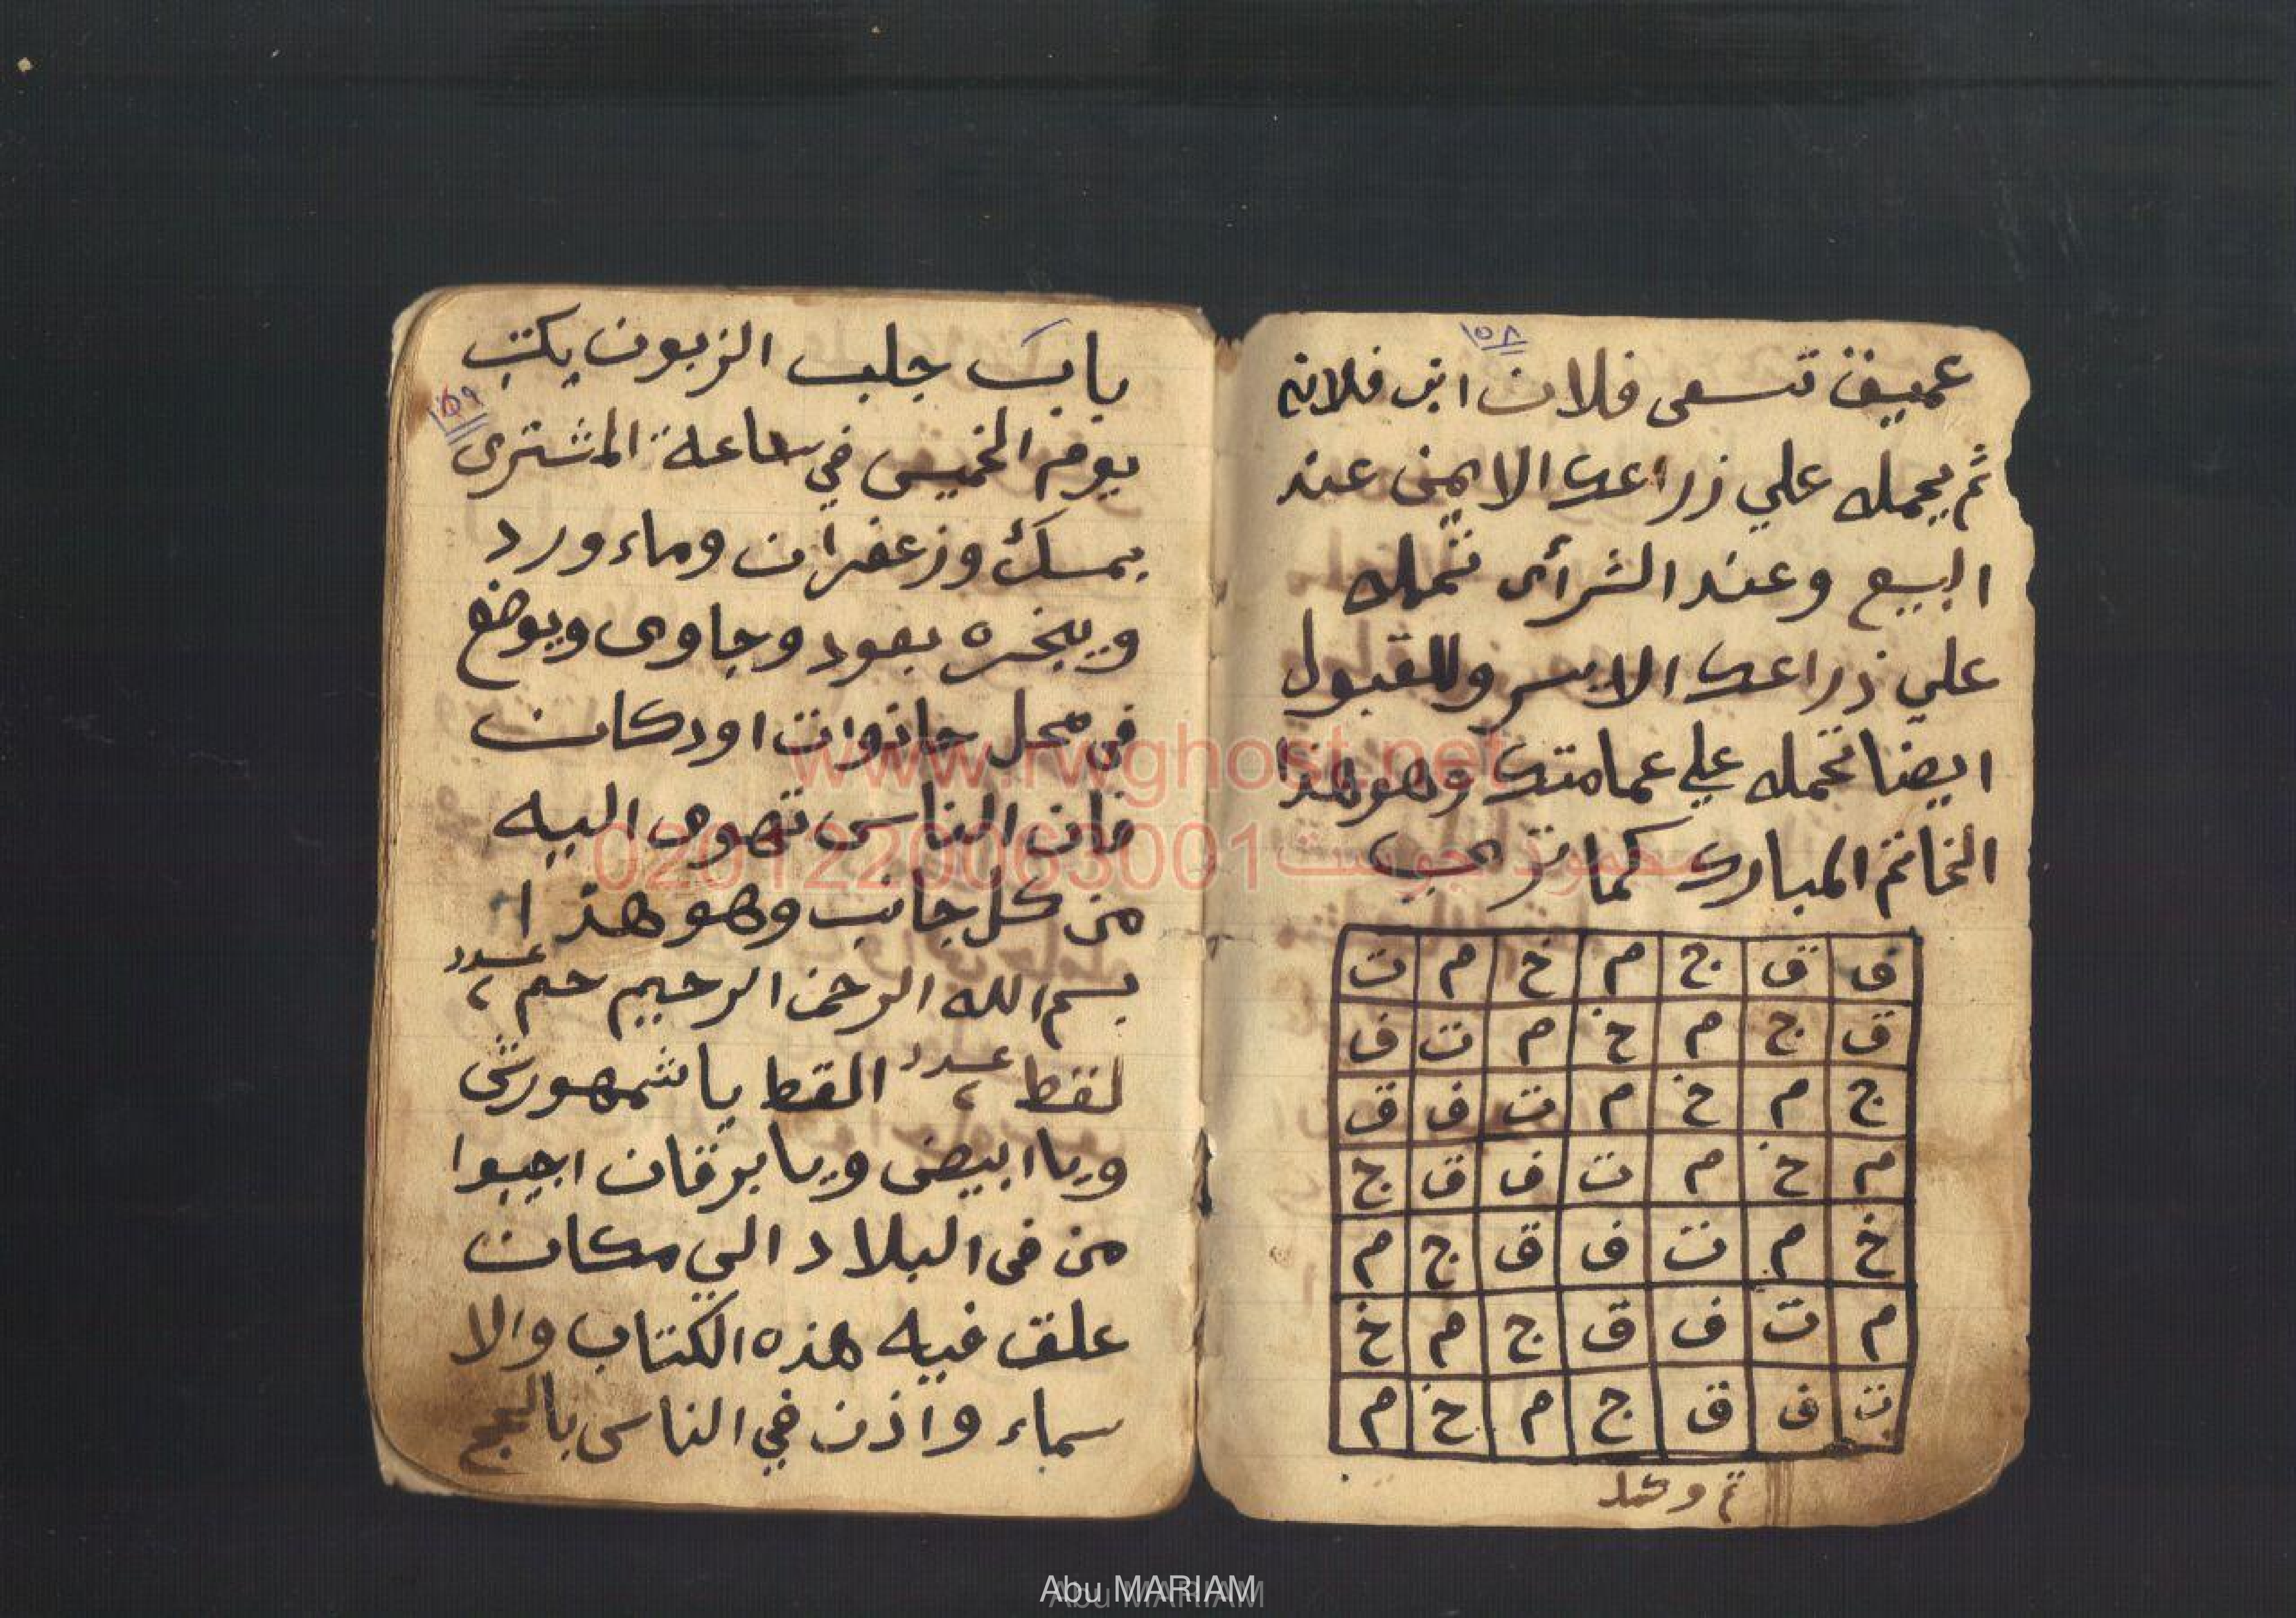 ١٥٨
عميق تسعى فلان ابن فلانه
ثم يحمله علي ذراعك الايمن عند
البيع وعند الشرأى تحمله
علي ذراعك الايسر وللقبول
ايضا تحمله علي عمامتك وهو هذا
الخاتم المبارك كما ترى
ف ق ج م خ م ت
ق ج م خ م ت ف
ج م خ م ت ف ق
م خ م ت ف ق ج
خ م ت ف ق ج م
م ت ف ق ج م خ
ت ف ق ج م خ م
تم وكمل
١٥٩
باب جلب الزبون يكتب
يوم الخميس في ساعة المشترى
بمسك وزعفران وماء ورد
ويبخره بعود وجاوى ويوضع
فى محل حانوات او دكان
فان الناس تهوى اليه
من كل جانب وهو هذا
بسم الله الرحمن الرحيم حم عدد
لقط عدد القط يا شمهورش
ويا ابيض ويا برقان اجيبوا
من فى البلاد الي مكان
علق فيه هذه الكتاب والا
سماء واذن في الناس بالحج
www.rwghost.net
محمود جوست 0201220063001
Abu MARIAM